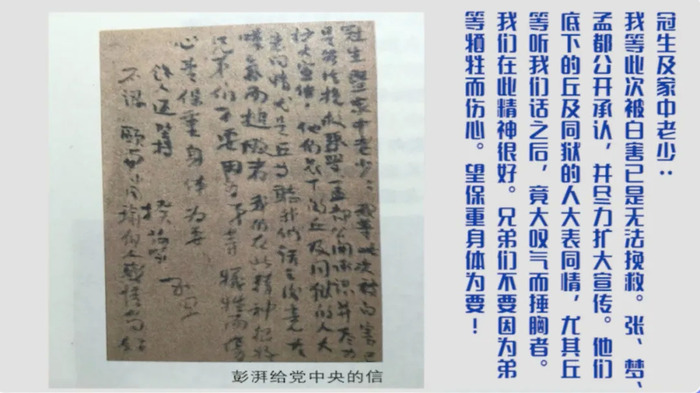 冠生暨家中老少：我等此次被白害已
是无法挽救
扩大宣传他们底下的丘及同狱的人大
表同情尤是丘等听我们话之后竟大
叹气而捶胸者我们在此精神很好
兄弟们不要因弟等牺牲而伤
心望保重身体为要
彭湃给党中央的信
冠生及家中老少：
我等此次被白害已是无法挽救。张、梦、
孟都公开承认，并尽力扩大宣传。他们
底下的丘及同狱的人大表同情，尤其丘
等听我们话之后，竟大叹气而捶胸者。
我们在此精神很好。兄弟们不要因为弟
等牺牲而伤心。望保重身体为要！